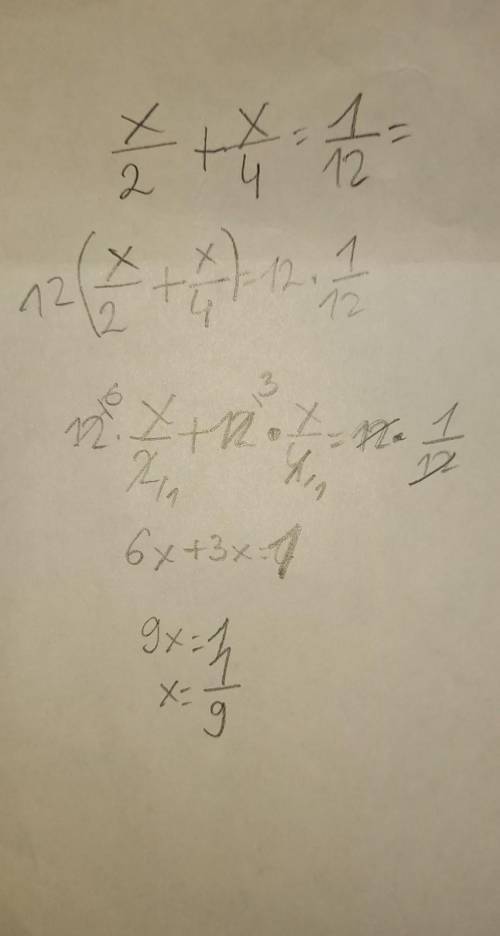 x/2 + x/4 = 1/12 =
12(x/2 + x/4) = 12 · 1/12
12⁶ · x/2₁ + 12³ · x/4₁ = 12 · 1/12
6x + 3x = 1
9x = 1
x = 1/9